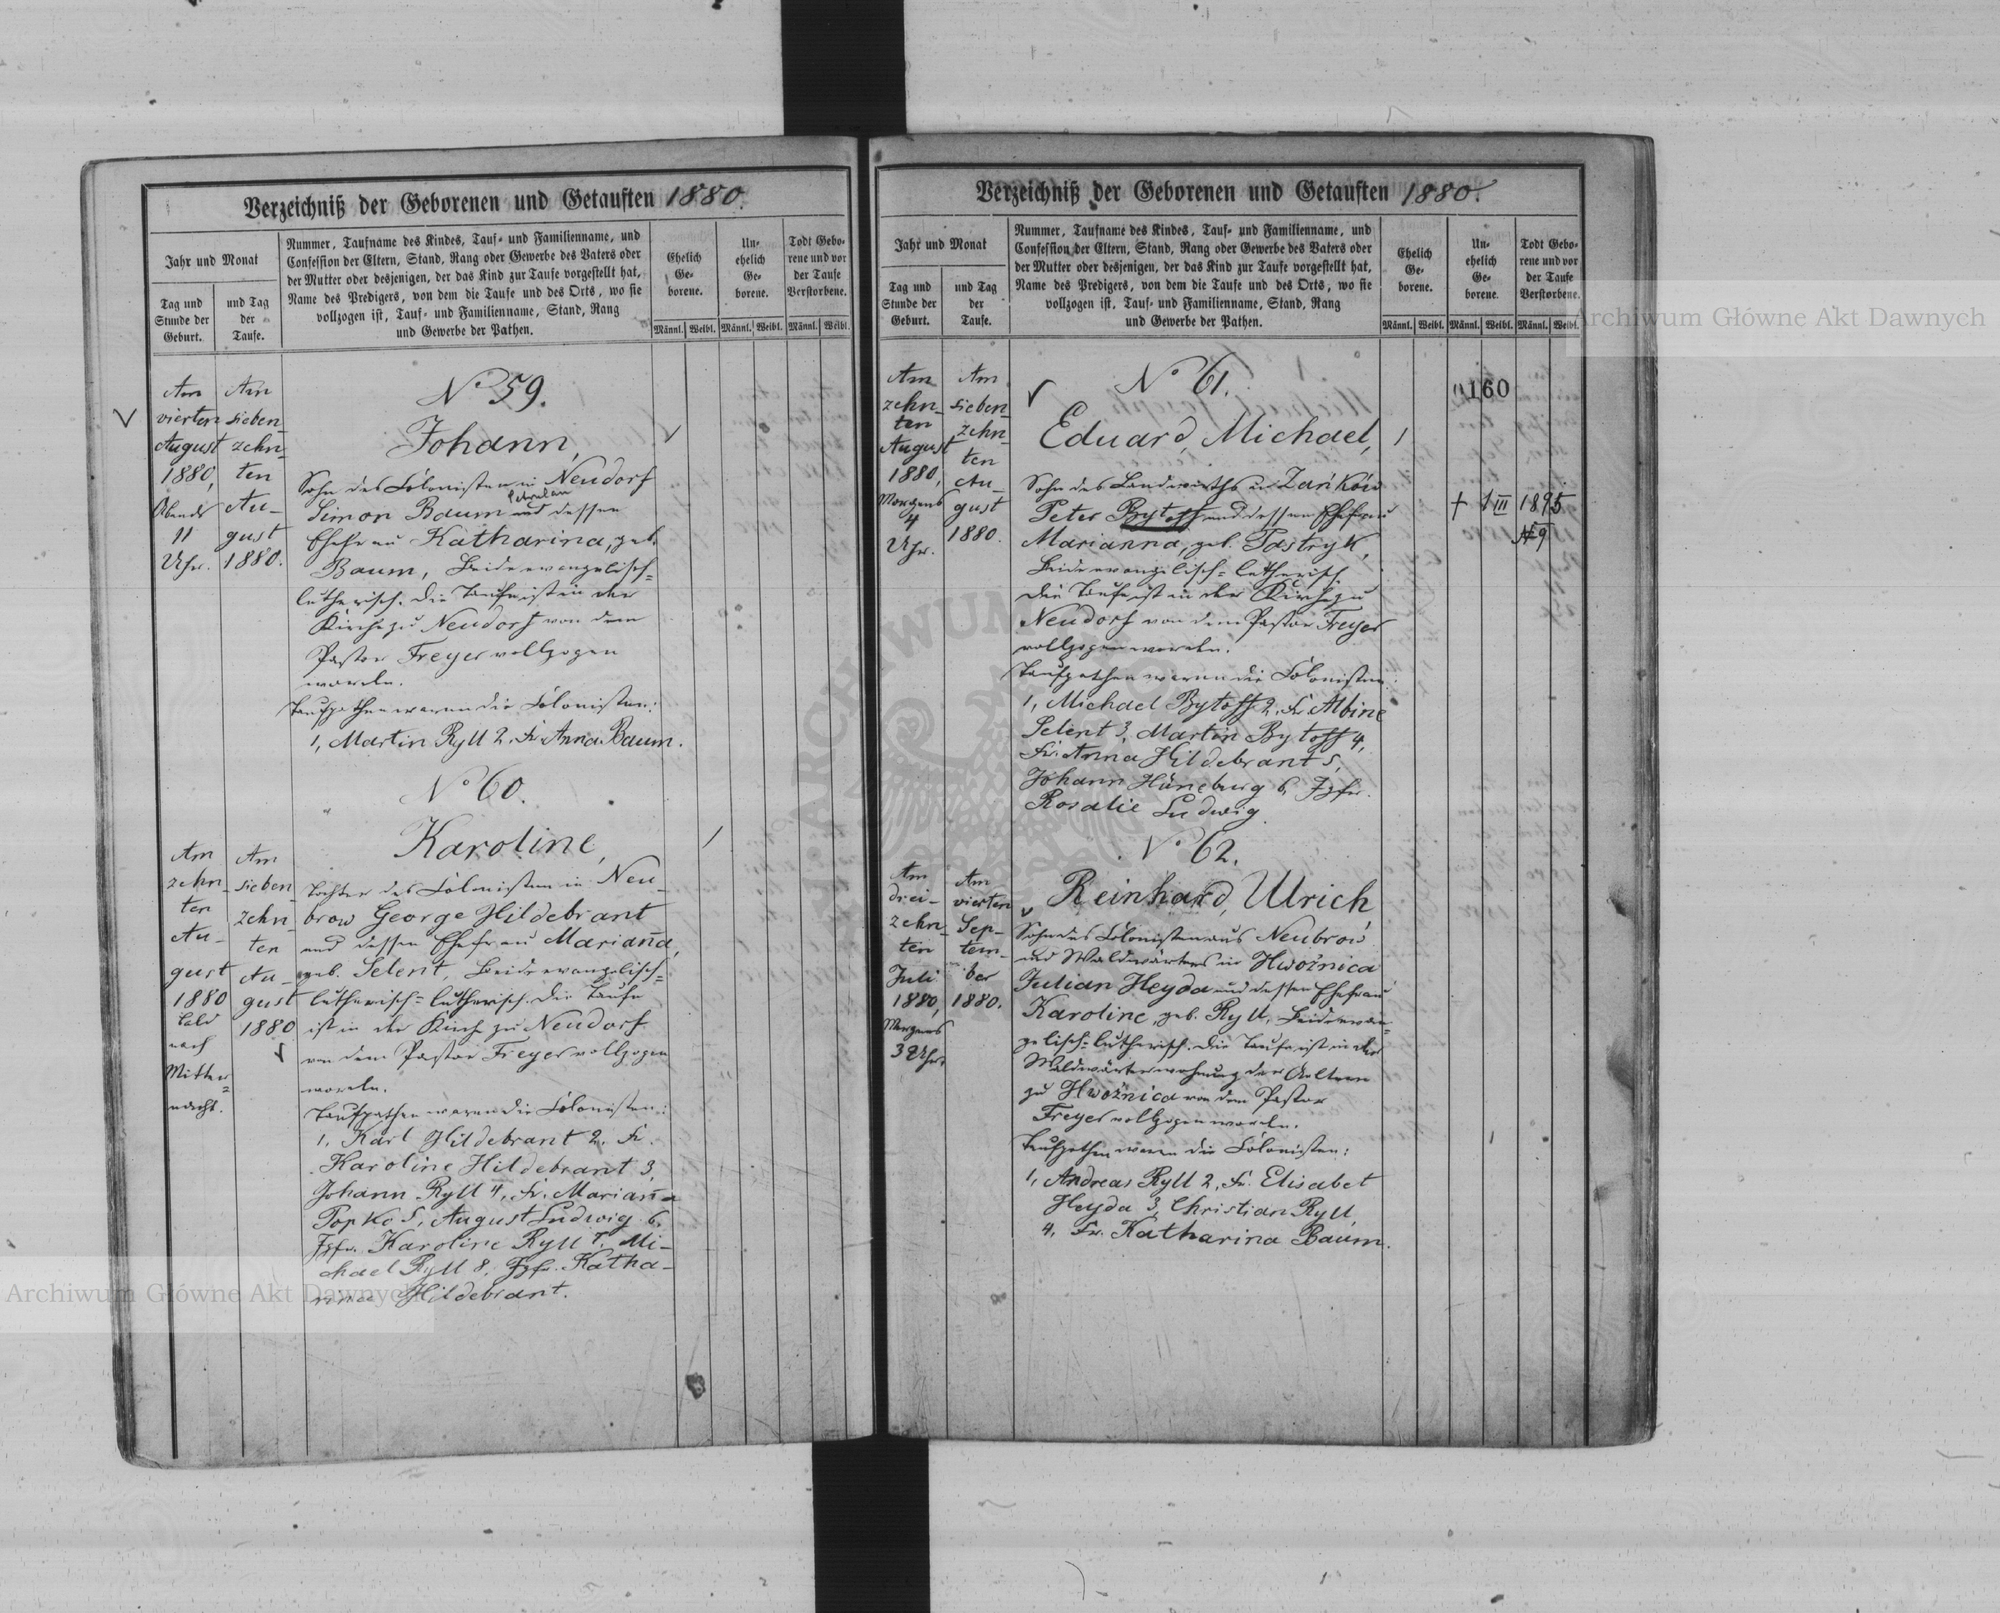 Verzeichniß der Geborenen und Getauften 1880.
Jahr und Monat
Tag und
Stunde der
Geburt.
und Tag
der
Taufe.
Nummer, Taufname des Kindes, Tauf- und Familienname, und
Confession der Eltern, Stand, Rang oder Gewerbe des Vaters oder
der Mutter oder desjenigen, der das Kind zur Taufe vorgestellt hat,
Name des Predigers, von dem die Taufe und des Orts, wo sie
vollzogen ist, Tauf- und Familienname, Stand, Rang
und Gewerbe der Pathen.
Ehelich
Ge-
borene.
Un-
ehelich
Ge-
borene.
Todt Gebo-
rene und vor
der Taufe
Verstorbene.
Männl. Weibl. Männl. Weibl. Männl. Weibl.
Am
vierten
August
1880,
Abends
11
Uhr.
Am
sieben-
zehn-
ten
Au-
gust
1880.
No 59.
Johann,
Sohn des Colonisten in Neudorf
Simon Baum und dessen
Ehefrau Katharina, geb.
Baum, Beide evangelisch-
lutherisch. Die Taufe ist in der
Kirche zu Neudorf von dem
Pastor Freyer vollzogen
worden.
Taufpathen waren die Colonisten:
1, Martin Ryll 2, Fr. Anna Baum.
No 60.
Am
zehn-
ten
Au-
gust
1880
bald
nach
Mitter-
nacht.
Am
sieben-
zehn-
ten
Au-
gust
1880
Karoline,
Tochter des Colonisten in Neu-
brow George Hildebrant
und dessen Ehefrau Marianna,
geb. Selent, Beide evangelisch-
lutherisch-lutherisch. Die Taufe
ist in der Kirche zu Neudorf
von dem Pastor Freyer vollzogen
worden.
Taufpathen waren die Colonisten:
1, Karl Hildebrant 2, Fr.
Karoline Hildebrant 3,
Johann Ryll 4, Fr. Marianna
Popko 5, August Ludwig 6,
Jgfr. Karoline Ryll 7, Mi-
chael Ryll 8, Jgfr. Katha-
rina Hildebrant.
Verzeichniß der Geborenen und Getauften 1880.
Jahr und Monat
Tag und
Stunde der
Geburt.
und Tag
der
Taufe.
Nummer, Taufname des Kindes, Tauf- und Familienname, und
Confession der Eltern, Stand, Rang oder Gewerbe des Vaters oder
der Mutter oder desjenigen, der das Kind zur Taufe vorgestellt hat,
Name des Predigers, von dem die Taufe und des Orts, wo sie
vollzogen ist, Tauf- und Familienname, Stand, Rang
und Gewerbe der Pathen.
Ehelich
Ge-
borene.
Un-
ehelich
Ge-
borene.
Todt Gebo-
rene und vor
der Taufe
Verstorbene.
Männl. Weibl. Männl. Weibl. Männl. Weibl.
160
Am
zehn-
ten
August
1880,
Morgens
4
Uhr.
Am
sieben-
zehn-
ten
Au-
gust
1880.
No 61.
Eduard, Michael,
Sohn des Landwirths in Zańków
Peter Bytoff und dessen Ehefrau
Marianna, geb. Pastryk,
Beide evangelisch-lutherisch.
Die Taufe ist in der Kirche zu
Neudorf von dem Pastor Freyer
vollzogen worden.
Taufpathen waren die Colonisten:
1, Michael Bytoff 2, Fr. Albine
Selent 3, Martin Bytoff 4,
Fr. Anna Hildebrant 5,
Johann Hüneburg 6, Jgfr.
Rosalie Ludwig.
† 1 III 1895
№ 9
No 62.
Am
drei-
zehn-
ten
Juli
1880,
Morgens
3 Uhr.
Am
vierten
Sep-
tem-
ber
1880.
Reinhard, Ulrich,
Sohn des Colonisten aus Neubrow
und Waldwärters in Hwoźnica
Julian Heyda und dessen Ehefrau
Karoline, geb. Ryll, Beide evan-
gelisch-lutherisch. Die Taufe ist in der
Waldwärterwohnung der Aeltern
zu Hwoźnica von dem Pastor
Freyer vollzogen worden.
Taufpathen waren die Colonisten:
1, Andreas Ryll 2, Fr. Elisabet
Heyda 3, Christian Ryll,
4, Fr. Katharina Baum.
Archiwum Główne Akt Dawnych
Archiwum Główne Akt Dawnych
ARCHIWUM